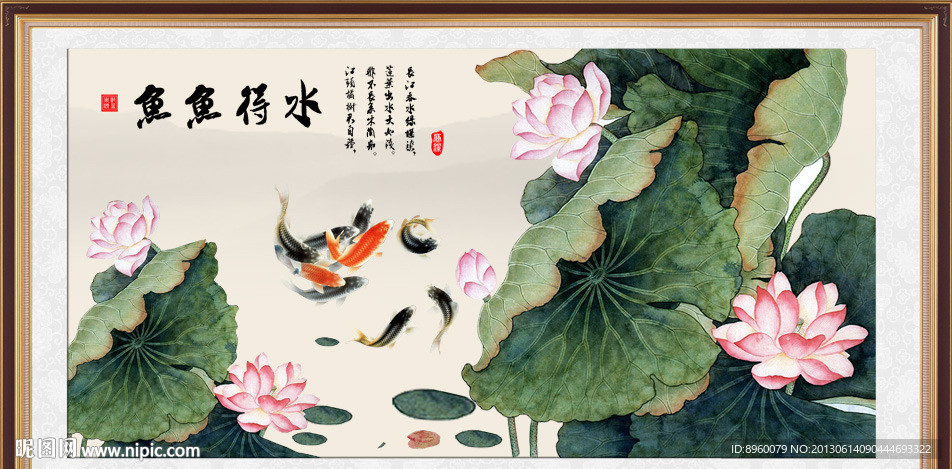 魚魚得水
長江春水綠堪染，
蓮葉出水大如錢。
那不長系木蘭船。
江頭橘樹君自種，
昵图网 www.nipic.com
ID:8960079 NO:20130614090444693322